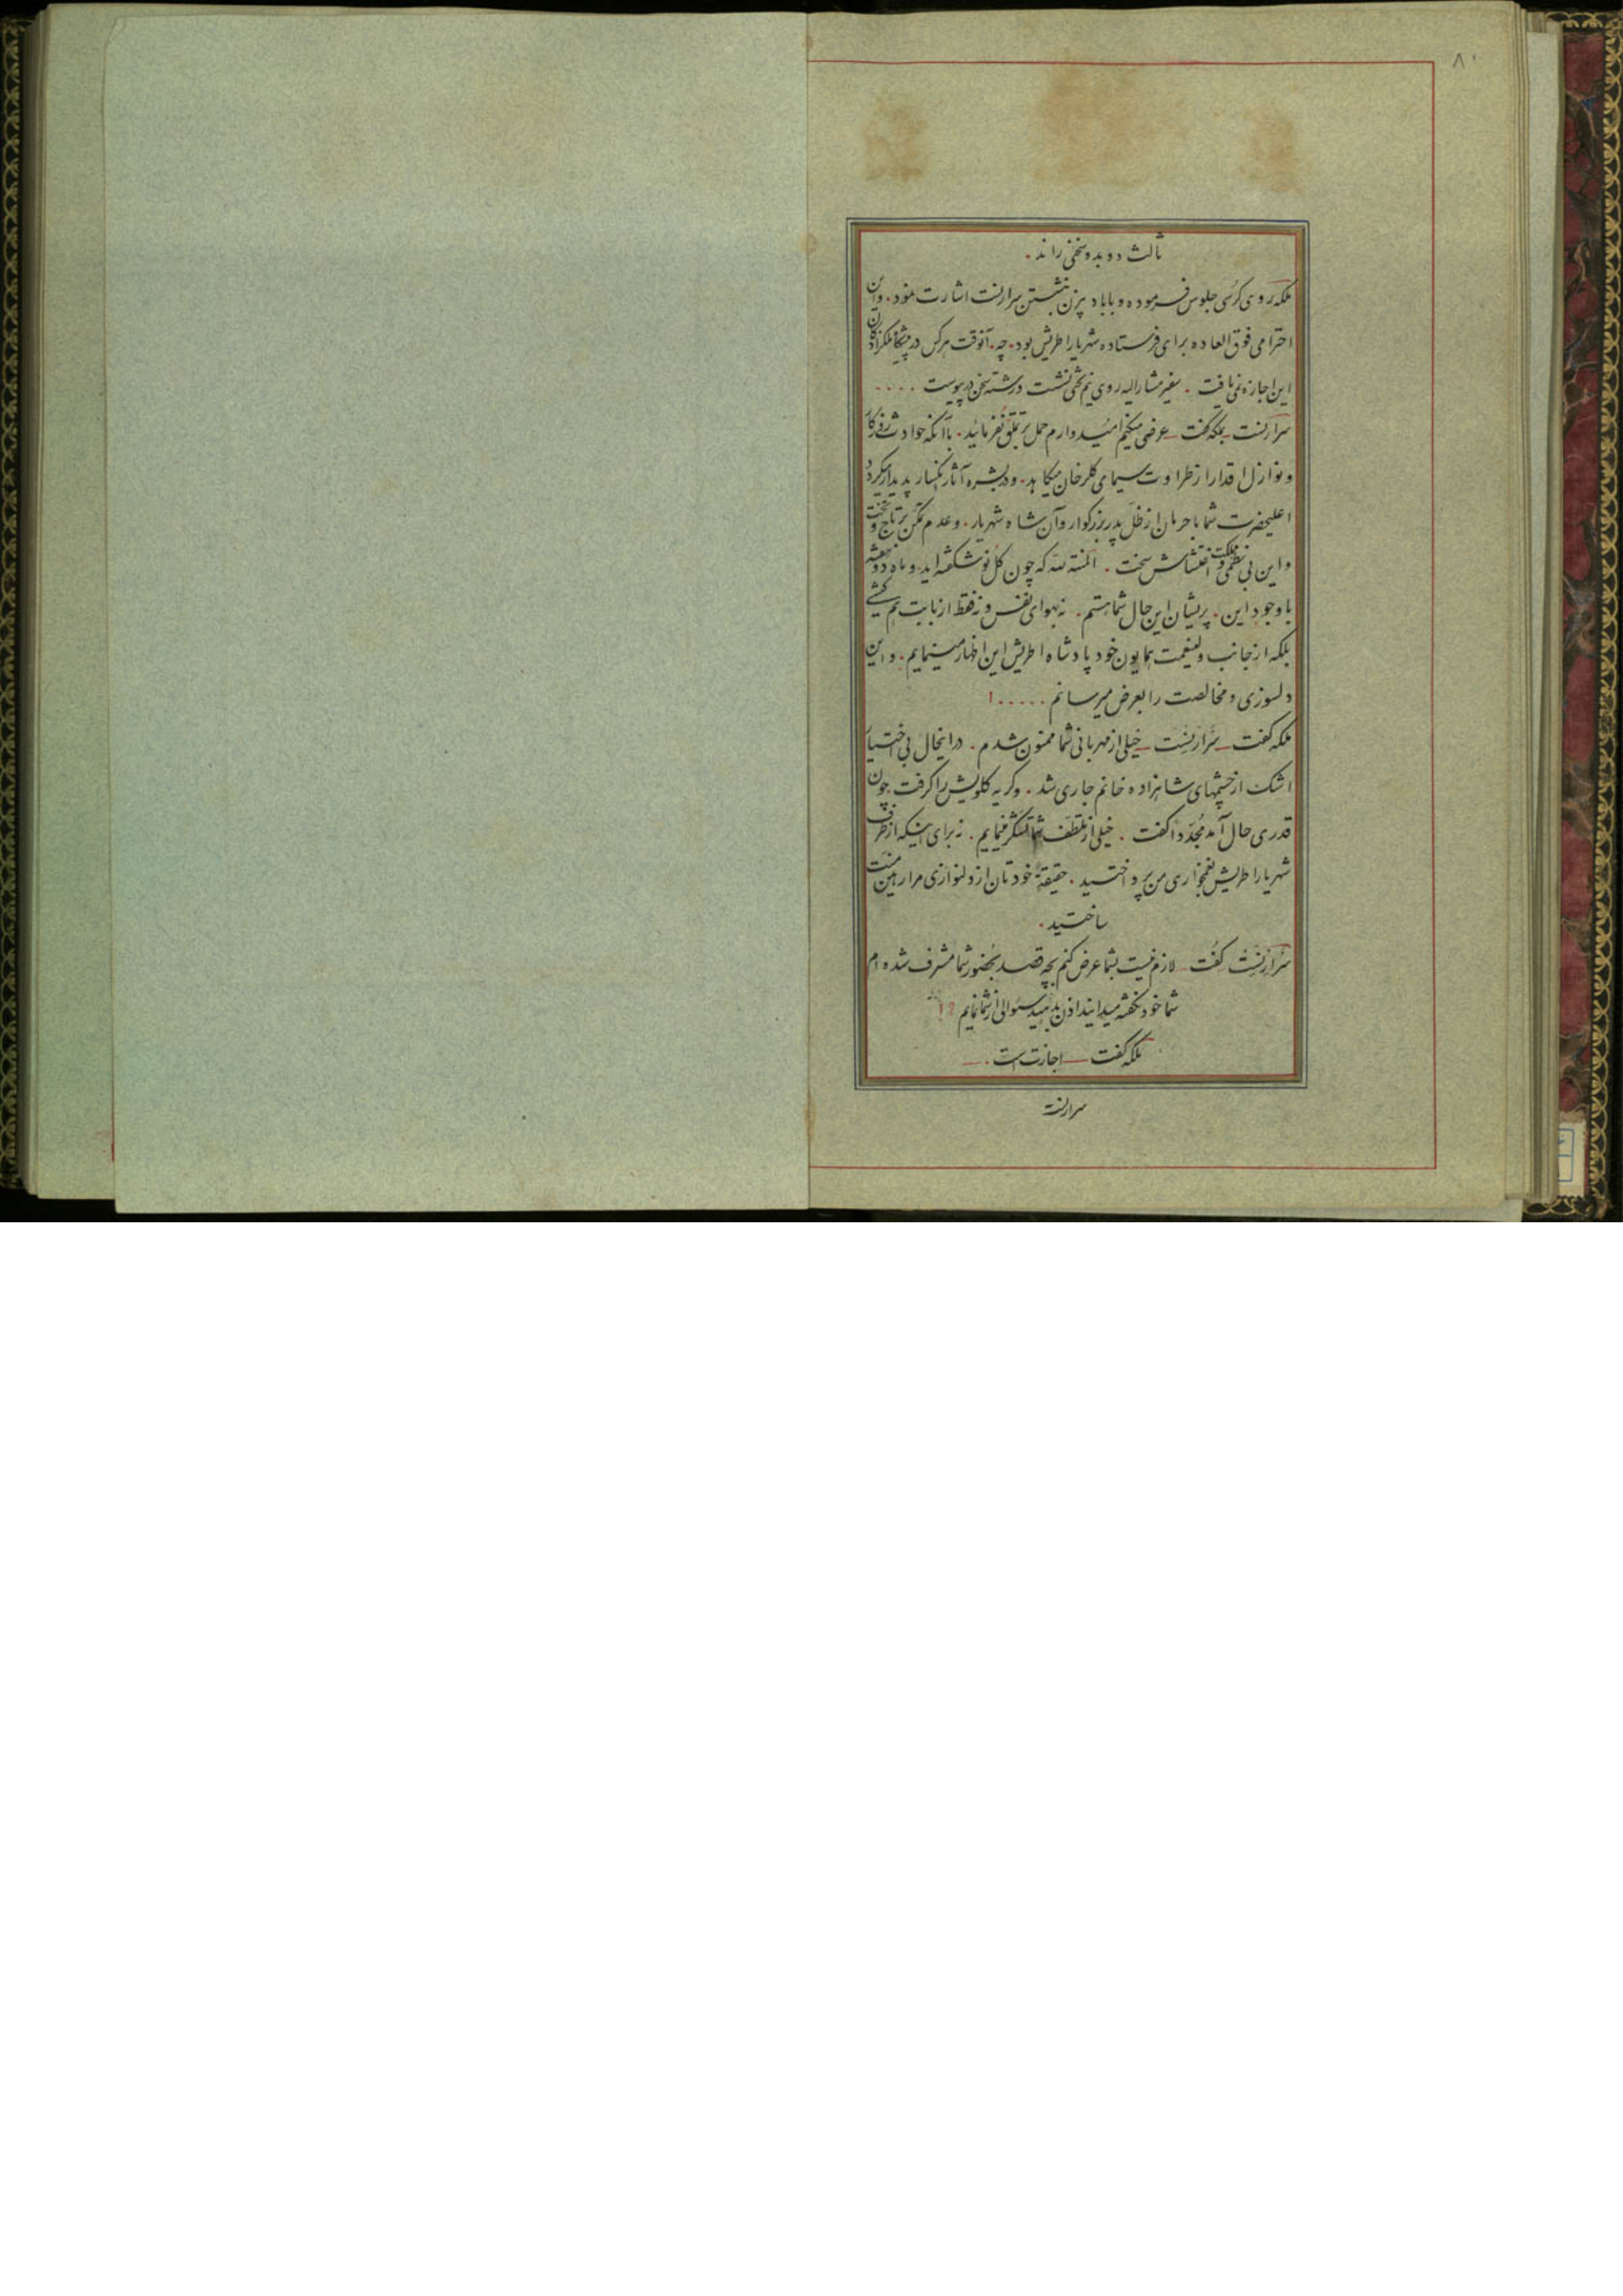 ۸۰
ثالث دوبدو سخنی راند .
ملکه روی کرسی جلوس فرموده و با بادبزن بنشستن سرارنست اشارت نمود . و این
احترامی فوق العاده برای فرستاده شهریار اطریش بود . چه . آنوقت هرکس در پیشگاه ملکزادگان
این اجازه نمی یافت . سفیر مشارالیه روی نیم تختی نشست و رشته سخن درپیوست ....
سرارنست بملکه گفت ــ عرضی میکنم امیدوارم حمل بر تملق نفرمائید . با آنکه حوادث روزگار
و نوازل اقدار از طراوت سیمای گلرخان میکاهد . و در بشره آثار انکسار پدیدار میگردد
اعلیحضرت شما با حرمان از ظل پدر بزرگوار و آن شاه شهریار . و عدم تمکن بر تاج و تخت
و این بی نظمی مملکت و اغتشاش سخت . المنة لله که چون گل نوشکفته اید و ماه دوهفته
با وجود این . پریشان این حال شما هستم . نه بهوای نفس و نه فقط از بابت هم کیشی
بلکه از جانب ولینعمت همایون خود پادشاه اطریش این اظهار مینمایم . و این
دلسوزی و مخالصت را بعرض میرسانم .....!
ملکه گفت ــ سرارنست ــ خیلی از مهربانی شما ممنون شدم . در اینحال بی اختیار
اشک از چشمهای شاهزاده خانم جاری شد . و گریه گلویش را گرفت چون
قدری حال آمد مجدّداً گفت . خیلی از تلطّف شما تشکر مینمایم . نه برای اینکه از طرف
شهریار اطریش بغمخواری من پرداختید . حقیقةً خودتان از دلنوازی مرا رهین منّت
ساختید .
سرارنست گفت ــ لازم نیست بشما عرض کنم بچه قصد بحضور شما مشرف شده ام
شما خود نگفته میدانید اذن بدهید سئوالی از شما نمایم ؟!
ملکه گفت ــ اجازت است . ــ
سرارنست